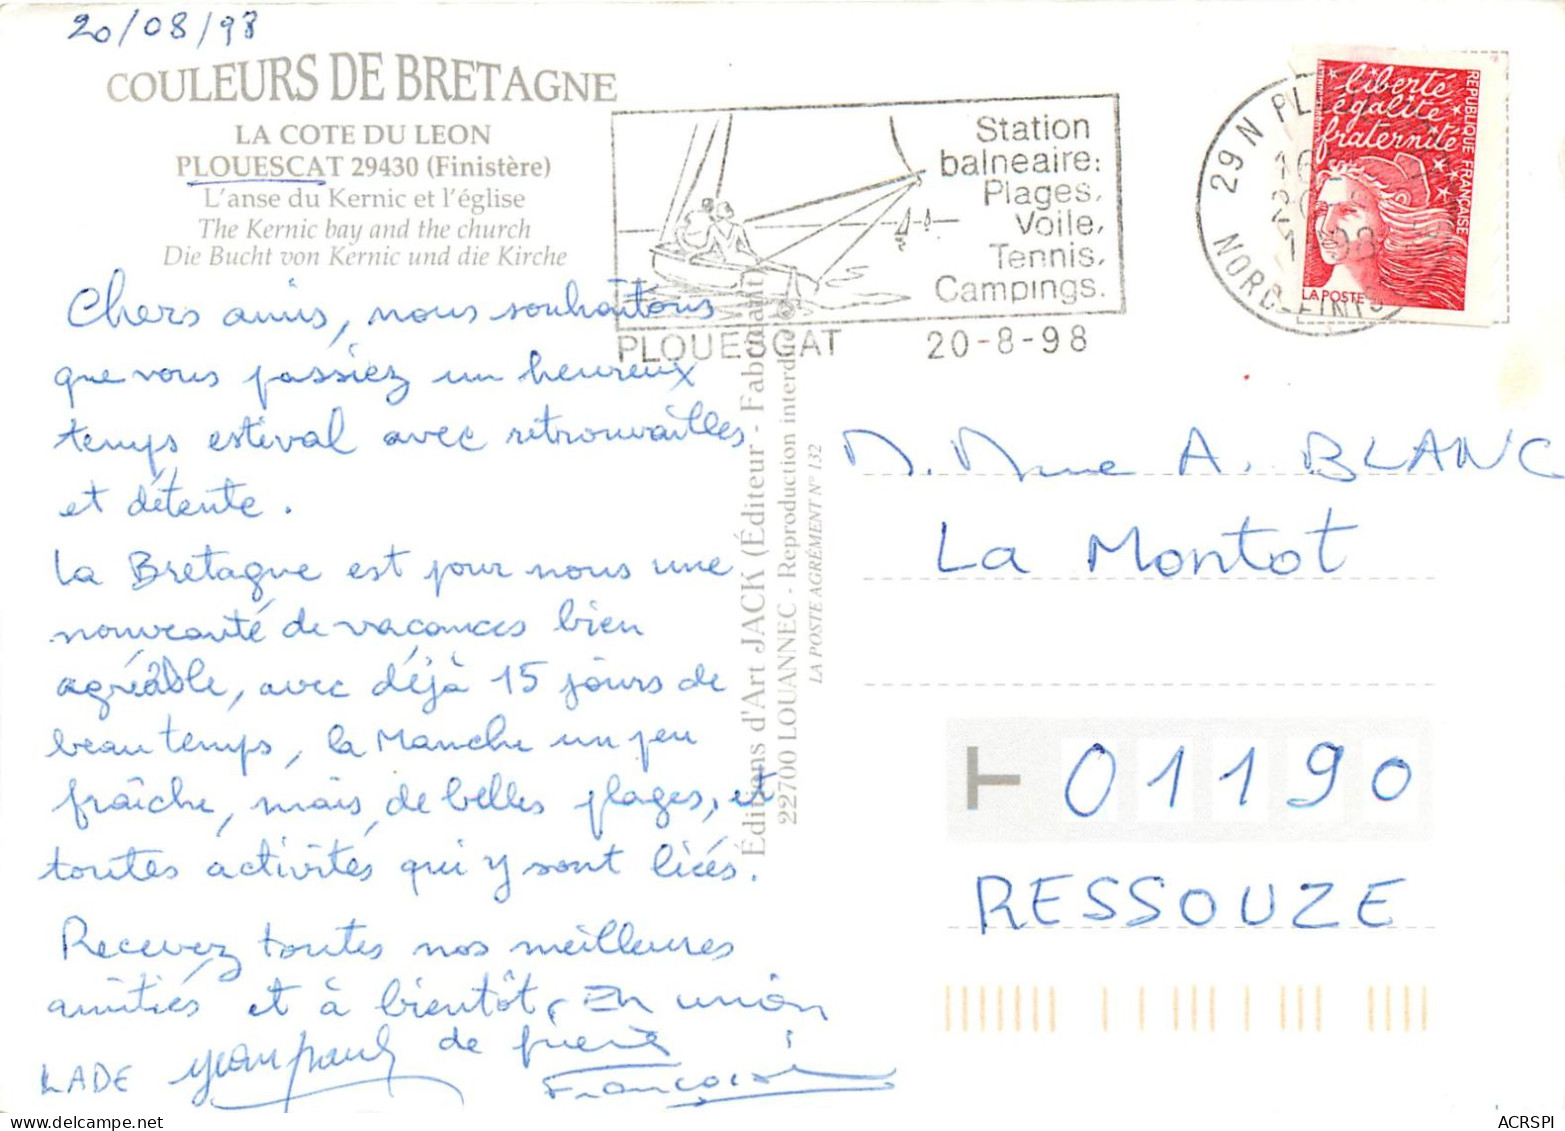 20/08/98
COULEURS DE BRETAGNE
LA COTE DU LEON
PLOUESCAT 29430 (Finistère)
L'anse du Kernic et l'église
The Kernic bay and the church
Die Bucht von Kernic und die Kirche
Chers amis, nous souhaitons
que vous passiez un heureux
temps estival avec retrouvailles
et détente.
La Bretagne est pour nous une
nouveauté de vacances bien
agréable, avec déjà 15 jours de
beau temps, la Manche un peu
fraîche, mais de belles plages, et
toutes activités qui y sont liées.
Recevez toutes nos meilleures
amitiés et à bientôt. En union
de prière
LADE Jean Paul
Françoise
Éditions d'Art JACK (Éditeur - Fabricant)
22700 LOUANNEC - Reproduction interdite
LA POSTE AGRÉMENT N° 132
Station
balneaire:
Plages,
Voile,
Tennis,
Campings.
PLOUESCAT 20-8-98
29 N PL
NORD-FINIS
liberté
égalité
fraternité
REPUBLIQUE FRANÇAISE
LA POSTE
M. Mme A. BLANC
La Montot
01190
RESSOUZE
ACRSPI